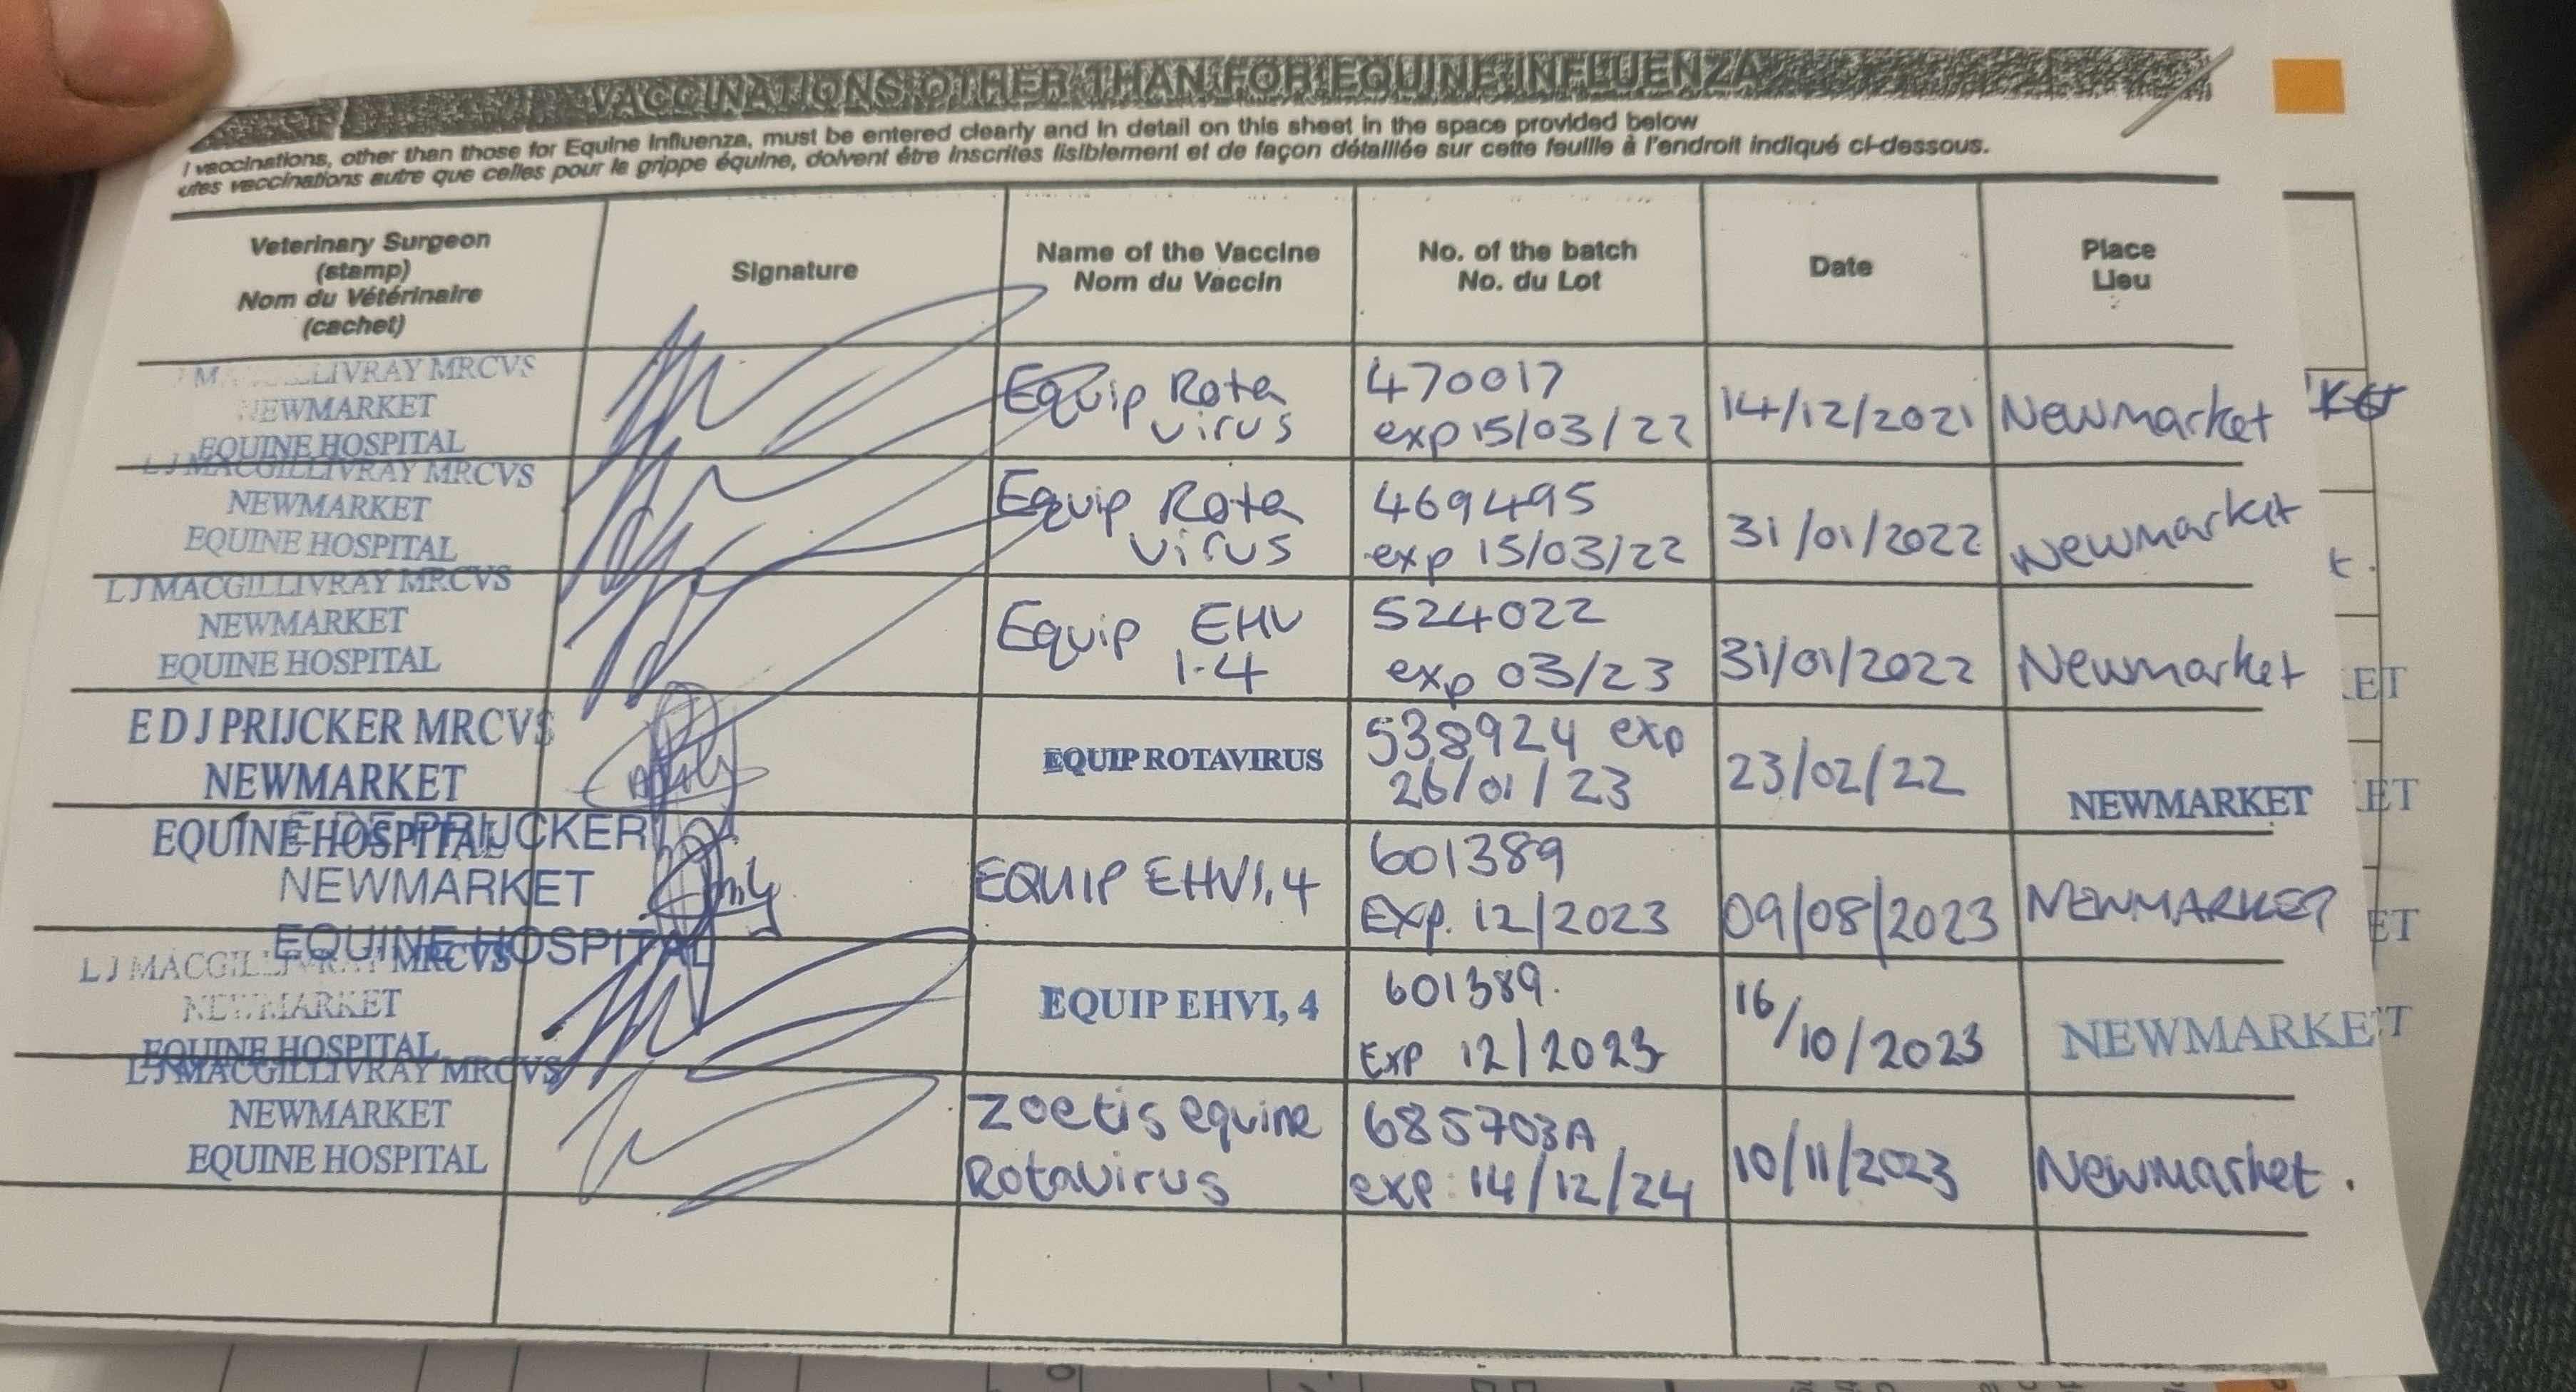 VACCINATIONS OTHER THAN FOR EQUINE INFLUENZA
l vaccinations, other than those for Equine Influenza, must be entered clearly and in detail on this sheet in the space provided below
utes vaccinations autre que celles pour la grippe équine, doivent être inscrites lisiblement et de façon détaillée sur cette feuille à l'endroit indiqué ci-dessous.
Veterinary Surgeon
(stamp)
Nom du Vétérinaire
(cachet)
Signature
Name of the Vaccine
Nom du Vaccin
No. of the batch
No. du Lot
Date
Place
Lieu
LIVRAY MRCVS
NEWMARKET
EQUINE HOSPITAL
Equip Rota
virus
470017
exp 15/03/22
14/12/2021
Newmarket
L J MACGILLIVRAY MRCVS
NEWMARKET
EQUINE HOSPITAL
Equip Rota
virus
469495
exp 15/03/22
31/01/2022
Newmarket
L J MACGILLIVRAY MRCVS
NEWMARKET
EQUINE HOSPITAL
Equip EHV
1-4
524022
exp 03/23
31/01/2022
Newmarket
E D J PRIJCKER MRCVS
NEWMARKET
EQUINE HOSPITAL
EQUIP ROTAVIRUS
538924 exp
26/01/23
23/02/22
NEWMARKET
PRIJCKER
NEWMARKET
EQUINE HOSPITAL
EQUIP EHV1,4
601389
EXP. 12/2023
09/08/2023
NEWMARKET
L J MACGILLIVRAY MRCVS
NEWMARKET
EQUINE HOSPITAL
EQUIP EHV1, 4
601389.
Exp 12/2023
16/10/2023
NEWMARKET
L J MACGILLIVRAY MRCVS
NEWMARKET
EQUINE HOSPITAL
Zoetis equine
Rotavirus
685703A
exp: 14/12/24
10/11/2023
Newmarket.